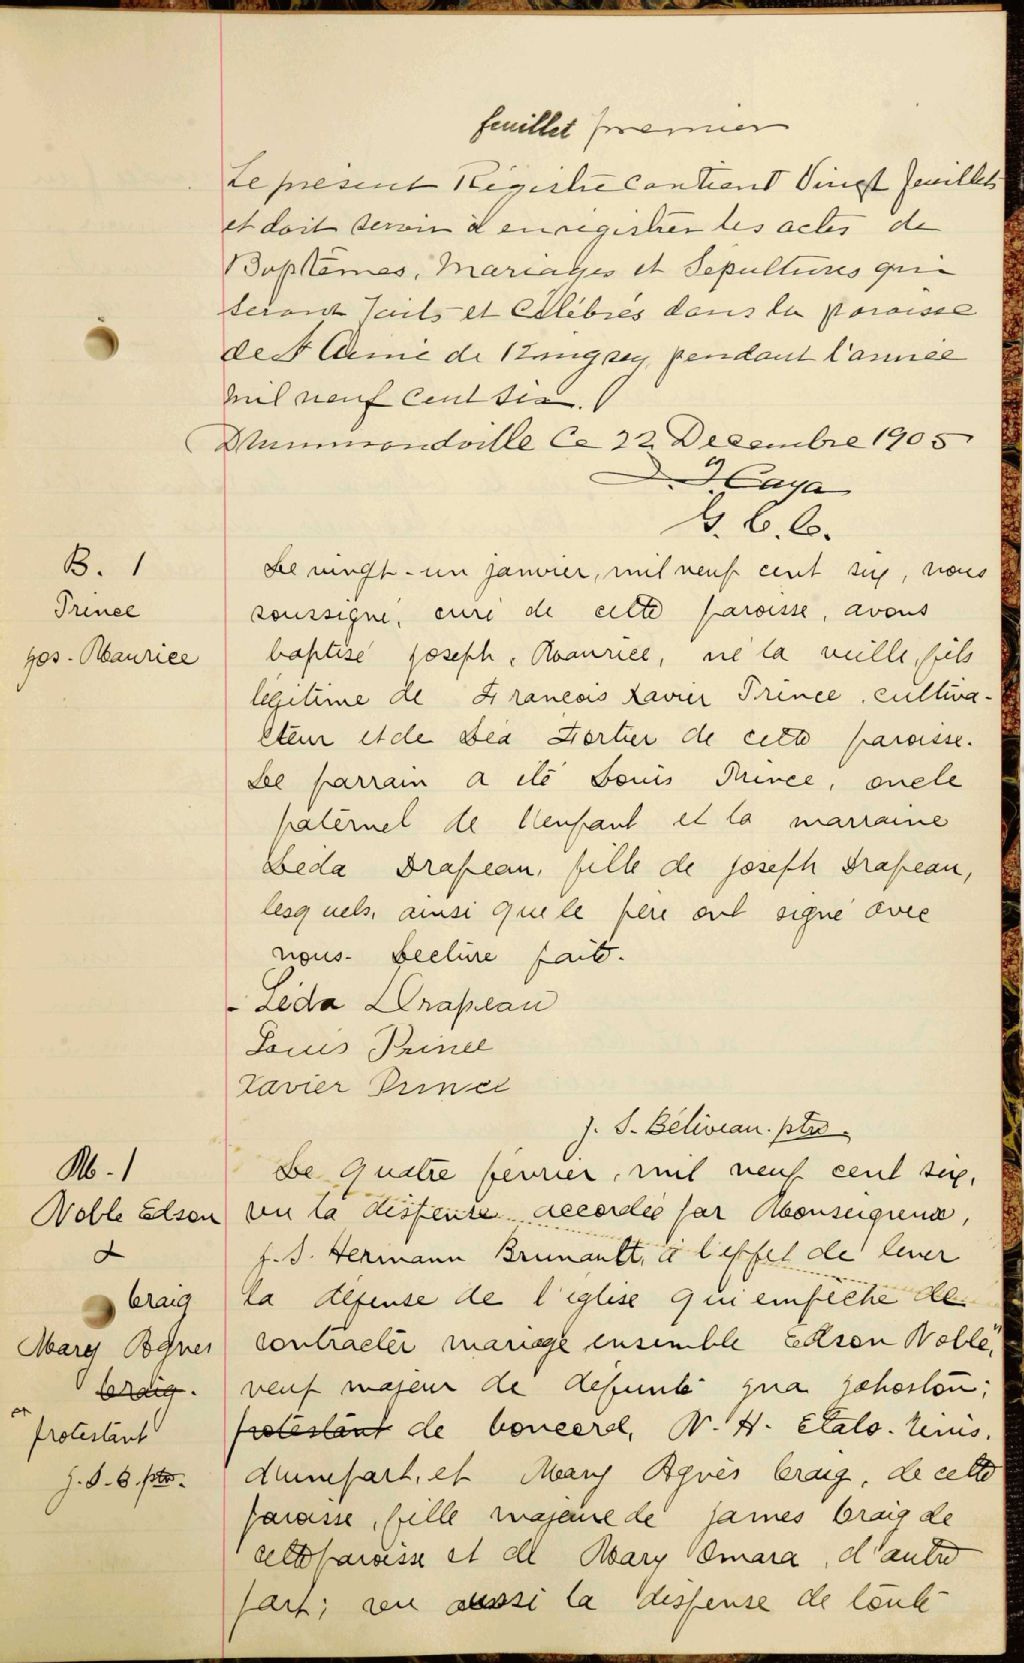 feuillet premier
Le présent Régistre contient Vingt feuillets
et doit servir à enrégistrer les actes de
Baptêmes, Mariages et Sépultures qui
seront faits et célébrés dans la paroisse
de St Aimé de Kingsey, pendant l'année
mil neuf cent six.
Drummondville Ce 22 Decembre 1905
J. Caya
G. C. C.
B. 1
Prince
Jos - Maurice
Le vingt-un janvier, mil neuf cent six, nous
soussigné, curé de cette paroisse, avons
baptisé Joseph, Maurice, né la veille, fils
légitime de Francois Xavier Prince, cultiva-
teur et de Léa Fortier de cette paroisse.
Le parrain a été Louis Prince, oncle
paternel de l'enfant et la marraine
Léda Drapeau, fille de Joseph Drapeau,
lesquels, ainsi que le père ont signé avec
nous. Lecture faite.
- Léda Drapeau
Louis Prince
Xavier Prince
J. S. Béliveau. ptre.
M - 1
Noble Edson
&
Craig
Mary Agnes
Craig.
protestant
J. S. B. ptre.
Le quatre février, mil neuf cent six,
vu la dispense accordée par Monseigneur,
J. S. Hermann Brunault, à l'effet de lever
la défense de l'église qui empêche de
contracter mariage ensemble Edson Noble,"
veuf majeur de défunte Johoston;
protestant de Concord, N. H. Etats-Unis,
d'une part, et Mary Agnès Craig, de cette
paroisse, fille majeure de James Craig de
cette paroisse et de Mary Omara, d'autre
part; vu aussi la dispense de toute